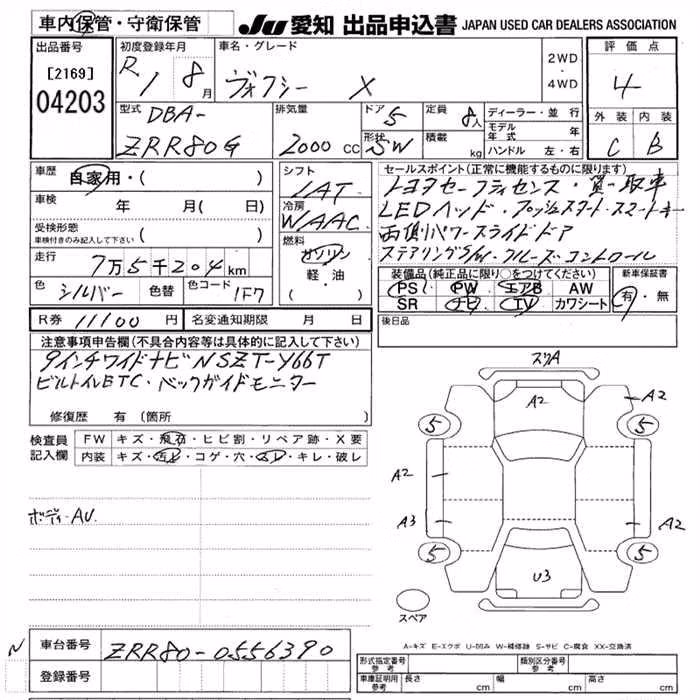 車内保管・守衛保管
JU 愛知 出品申込書 JAPAN USED CAR DEALERS ASSOCIATION
出品番号
[2169]
04203
初度登録年月
R 1 8 月
車名・グレード
ヴォクシー X
2WD
・
4WD
評価点
4
外装 内装
C B
型式 DBA-
ZRR80G
排気量
2000 cc
ドア 5
形状 SW
定員 8人
積載 kg
ディーラー・並行
モデル年式 年
ハンドル 左・右
車歴
自家用・( )
車検 年 月( )
受検形態
車検付きのみ記入して下さい ( )
走行 7万5千204km
色 シルバー 色替 色コード 1F7
シフト
IAT
冷房
WAAC
燃料
ガソリン
軽油
( ・ )
セールスポイント(正常に機能するものに限ります)
トヨタセーフティセンス・買取車
LEDヘッド・プッシュスタート・スマートキー
両側パワースライドドア
ステアリングS/W・クルーズコントロール
装備品(純正品に限り○をつけてください)
PS PW エアB AW
SR ナビ TV カワシート
新車保証書
有・無
R券 11100 円 名変通知期限 月 日
後日品
注意事項申告欄(不具合内容等は具体的に記入して下さい)
9インチワイドナビNSZT-Y66T
ビルトインETC・バックガイドモニター
修復歴 有(箇所 )
検査員記入欄
FW キズ・飛石・ヒビ割・リペア跡・X要
内装 キズ・汚レ・コゲ・穴・スレ・キレ・破レ
ボディーAU
スリA
A2
A2
5
5
A2
A3
A2
5
5
U3
スペア
A-キズ E-エクボ U-凹み W-補修跡 S-サビ C-腐食 XX-交換済
N
車台番号 ZRR80-0556390
登録番号
形式指定番号 参考
類別区分番号 参考
車庫証明用 参考 長さ cm 幅 cm 高さ cm